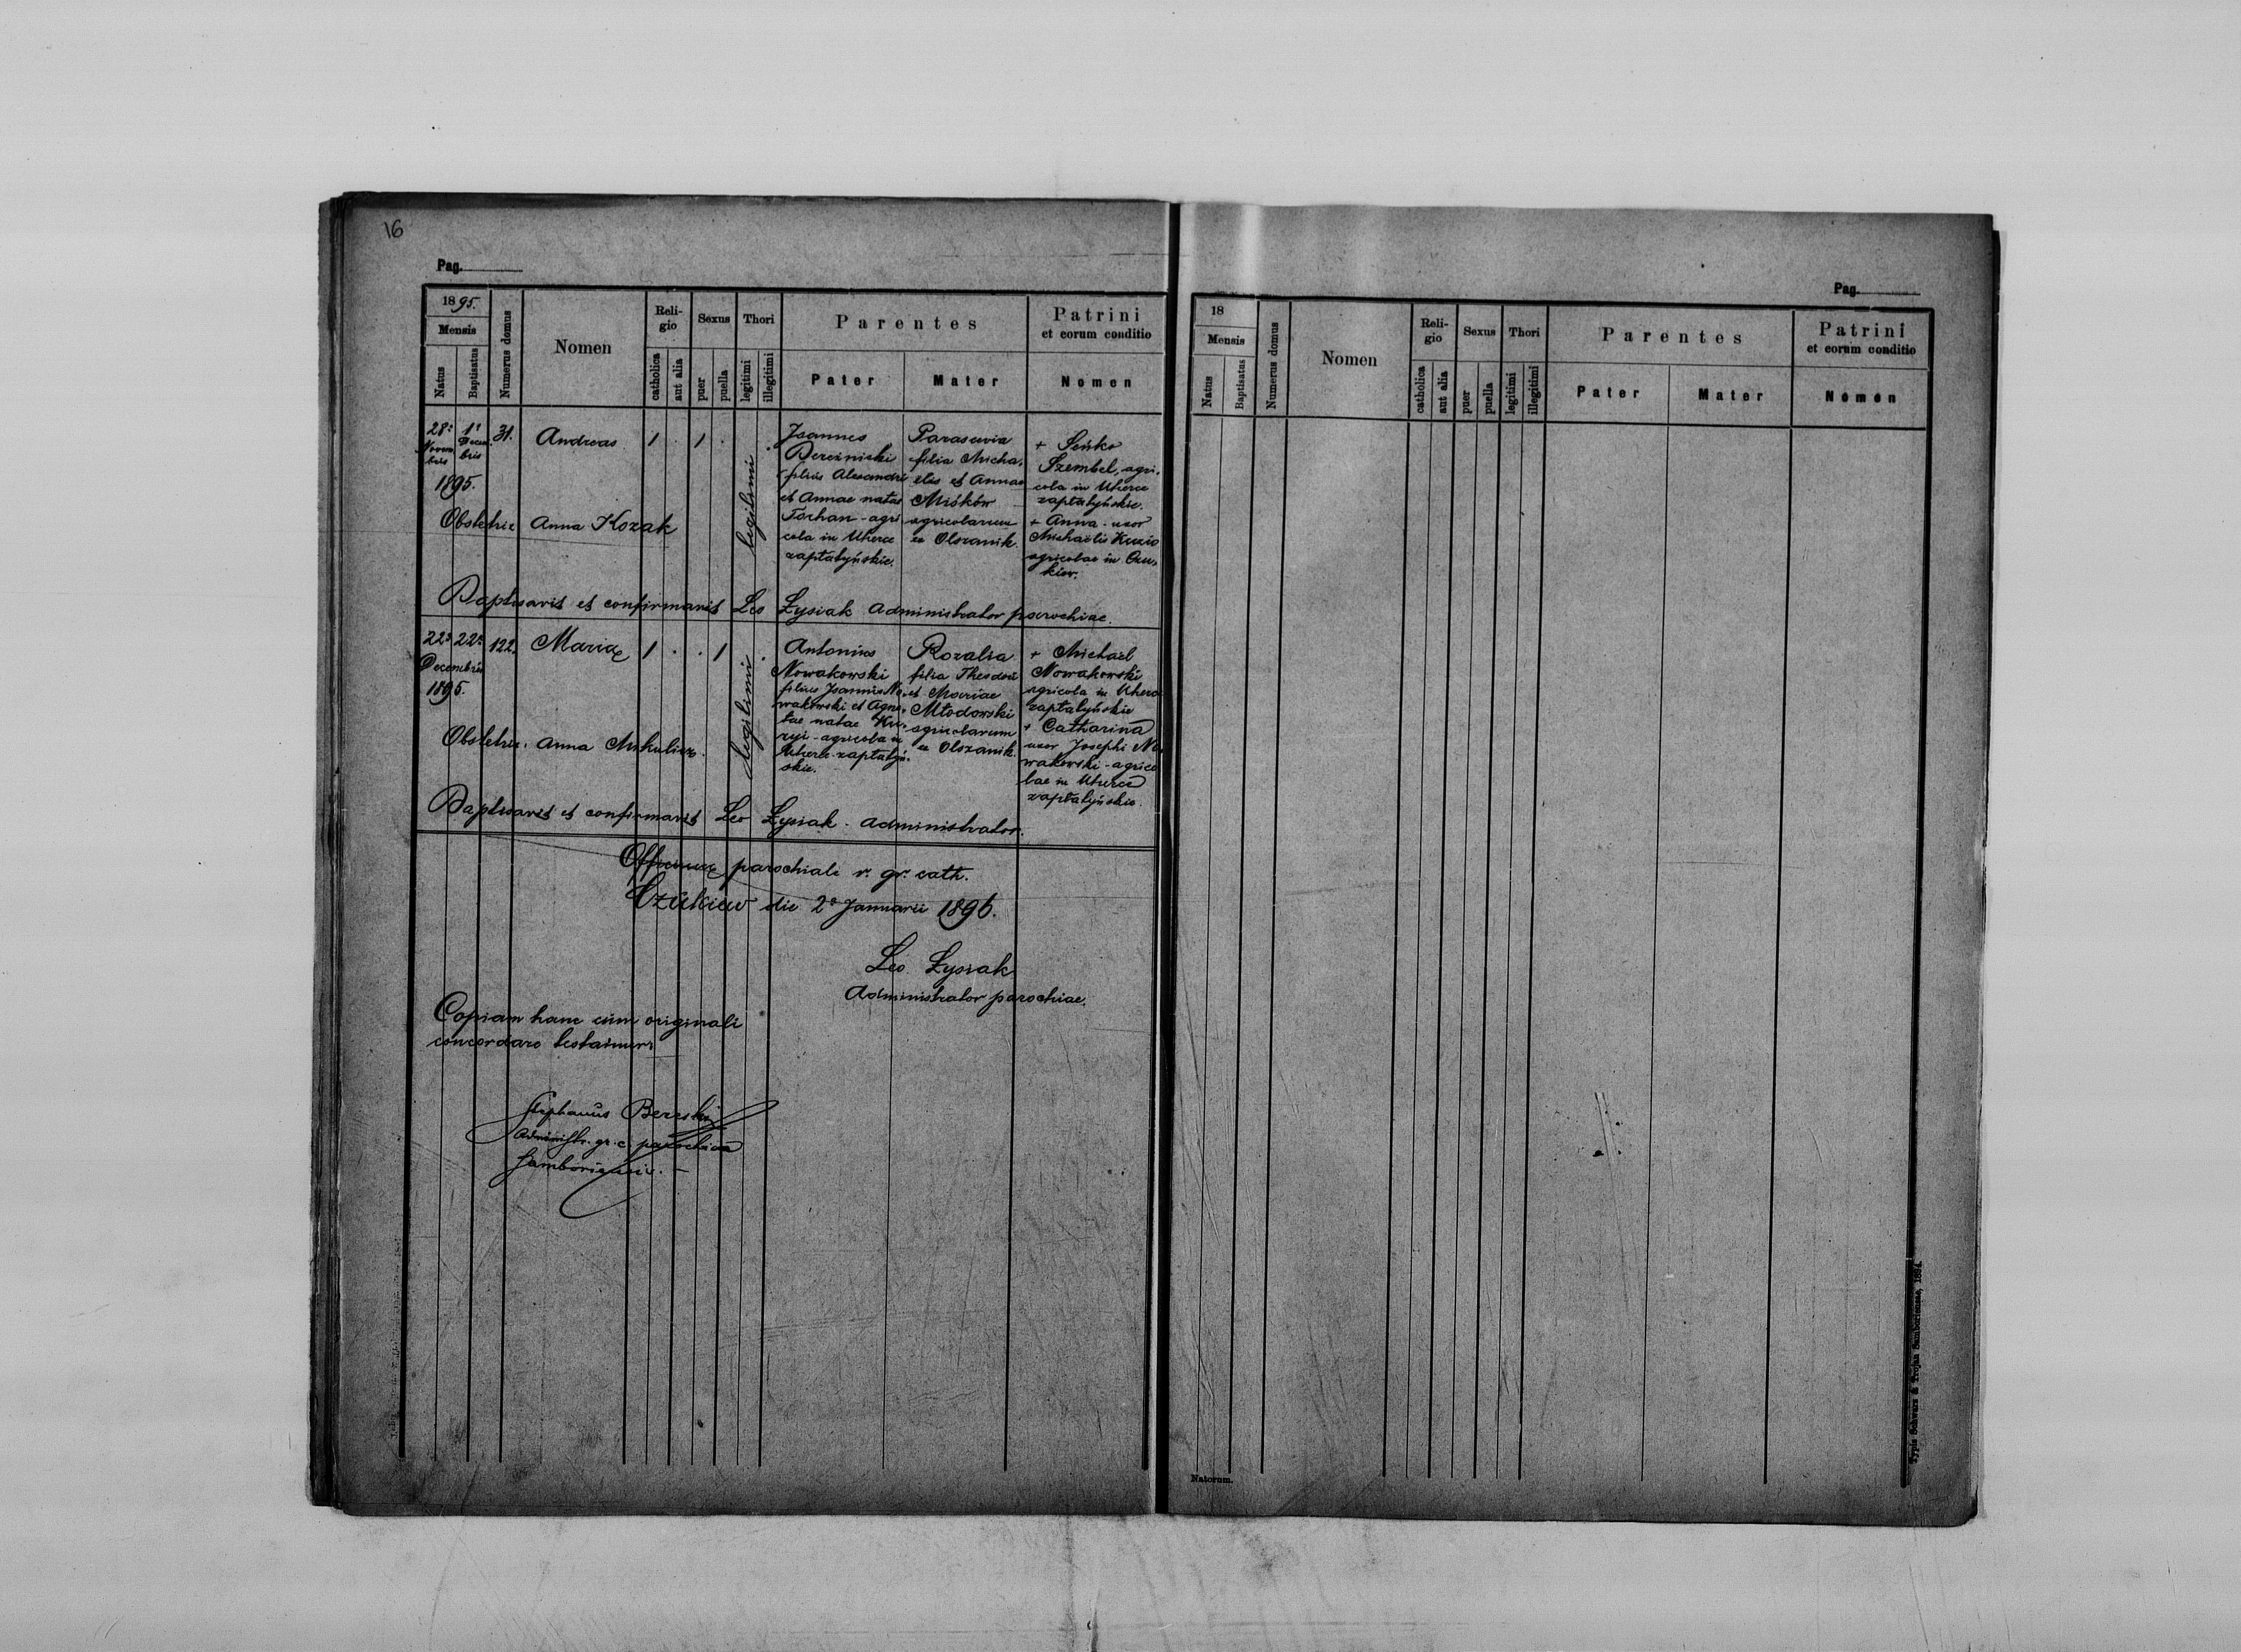 16
Pag.
1895.
Mensis
Natus
Baptisatus
Numerus domus
Nomen
Reli-
gio
catholica
aut alia
Sexus
puer
puella
Thori
legitimi
illegitimi
Parentes
Pater
Mater
Patrini
et eorum conditio
Nomen
28a
Novem
bris
1a
Decem
bris
1895.
31.
Andreas
1 . 1 .
legitimi
Joannes
Bereżnicki
filius Alexandri
et Annae natae
Torhan - agri
cola in Uherce
zapłatyńskie.
Parascevia
filia Micha,
elis et Annae
Miśków
agricolarum
ex Olszanik.
+ Seńko
Szembel, agri,
cola in Uherce
zapłatyńskie.
+ Anna - uxor
Michaelis Kuzio
agricolae in Czu,
kiew.
Obstetrix Anna Kozak
Baptisavit et confirmavit Leo Łysiak Administrator parochiae.
22a 22a
Decembris
1895.
122.
Maria
1 . . 1 .
legitimi
Antonius
Nowakowski
filius Joannis No,
wakowski et Agne,
tae natae Ku,
agricola in
Uherce zapłatyń,
skie.
Rozalia
filia Theodori
et Mariae
Młodowski
agricolarum
ex Olszanik.
+ Michael
Nowakowski
agricola in Uherce
zapłatyńskie
+ Catharina
uxor Josephi No
wakowski - agrico
lae in Uherce
zapłatyńskie.
Obstetrix. Anna Mikulicz.
Baptisavit et confirmavit Leo Łysiak - administrator.
Officium parochiale r. gr. cath.
Czukiew die 2a Januarii 1896.
Leo Łysiak
Administrator parochiae.
Copiam hanc cum originali
concordare testamur
Stephanus Bereski
Administr. gr. c. parochiae
Samboriensis. -
Pag.
18
Mensis
Natus
Baptisatus
Numerus domus
Nomen
Reli-
gio
catholica
aut alia
Sexus
puer
puella
Thori
legitimi
illegitimi
Parentes
Pater
Mater
Patrini
et eorum conditio
Nomen
Natorum.
Typis Schwarz & Trojan Samboriensae, 1894.